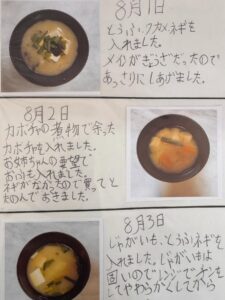 8月1日
とうふ、ワカメ、ネギを
入れました。
メインがぎょうざだったので
あっさりにしあげました。
8月2日
カボチャの煮物で余った
カボチャを入れました。
お姉ちゃんの要望で
おふも入れました。
ネギがなかったので買ってと
たのんでおきました。
8月3日
じゃがいも、とうふ、ネギを
入れました。じゃがいもは
固いのでレンジでチンを
してやわらかくしてから